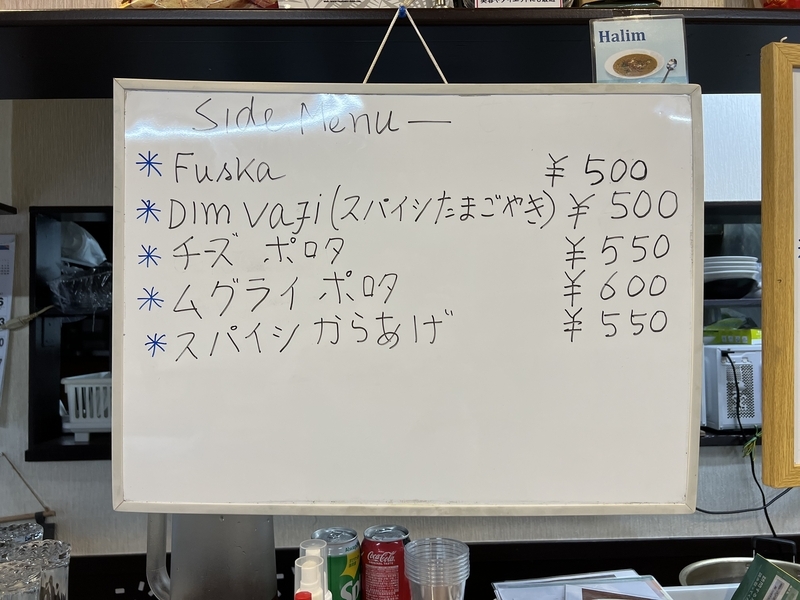 Halim
Side Menu —
* Fuska ¥ 500
* Dim vaji (スパイシたまごやき) ¥ 500
* チーズ ポロタ ¥ 550
* ムグライ ポロタ ¥ 600
* スパイシ からあげ ¥ 550
Coca-Cola